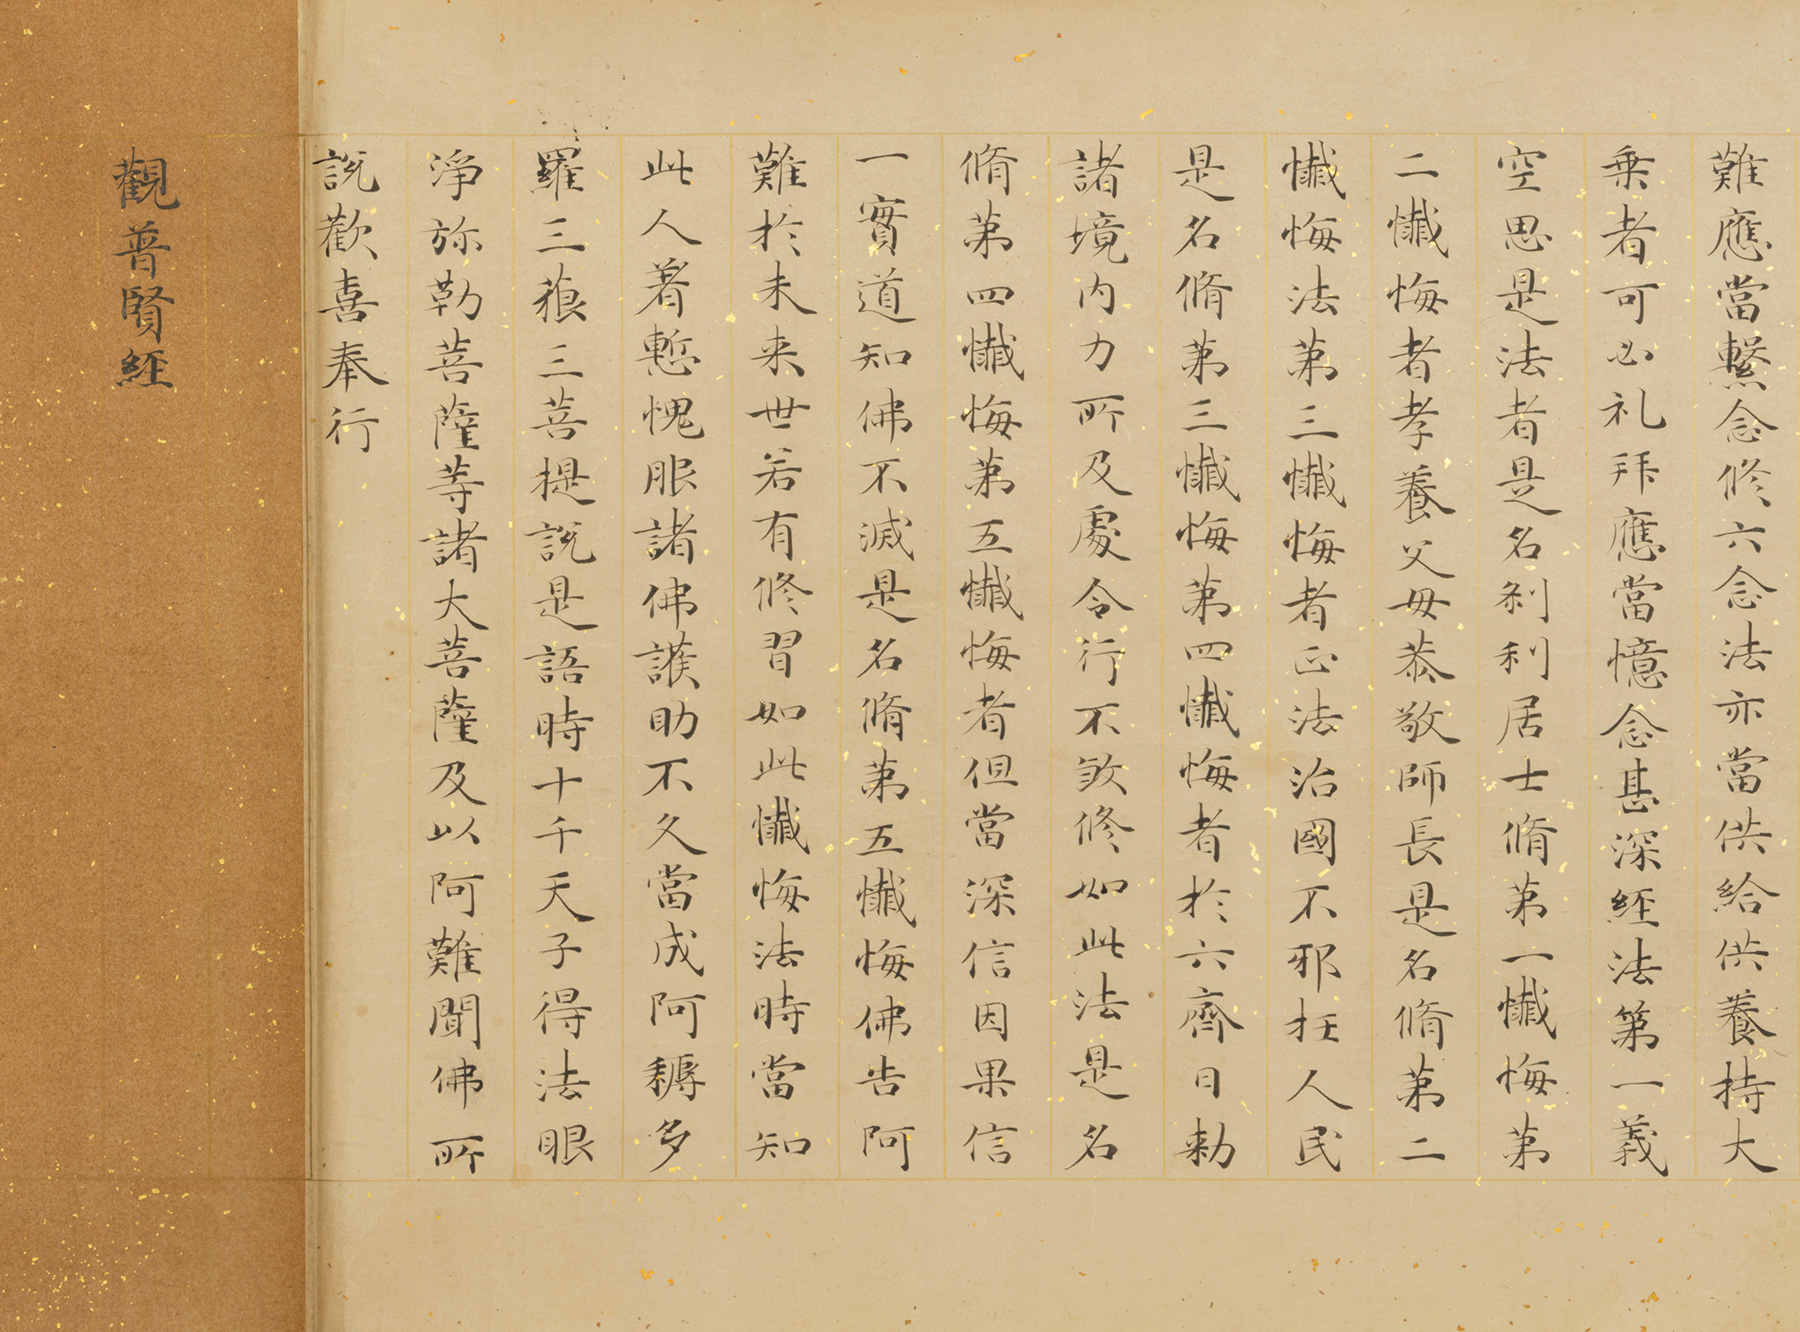 難應當繫念修六念法亦當供給供養持大
乗者可必礼拜應當憶念甚深経法第一義
空思是法者是名刹利居士脩第一懺悔第
二懺悔者孝養父母恭敬師長是名脩第二
懺悔法第三懺悔者正法治國不邪枉人民
是名脩第三懺悔第四懺悔者於六齋日勑
諸境内力所及處令行不敓修如此法是名
脩第四懺悔第五懺悔者但當深信因果信
一實道知佛不滅是名脩第五懺悔佛告阿
難於未来世若有修習如此懺悔法時當知
此人著慙愧服諸佛護助不久當成阿耨多
羅三藐三菩提說是語時十千天子得法眼
淨弥勒菩薩等諸大菩薩及以阿難聞佛所
說歡喜奉行
觀普賢経